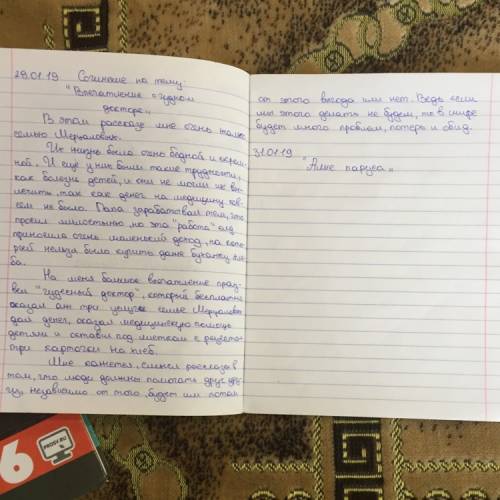 29.01.19 Сочинение на тему:
"Впечатление о чудном
докторе„
В этом рассказе мне очень жалко
семью Мерцаловых.
Их жизнь была очень бедной и скром-
ной. И ещё у них были такие трудности,
как болезнь детей, и они не могли их вы-
лечить, так как денег на медицину сов-
сем не было. Папа зарабатывал тем, что
просил милостыню, но эта "работа"
приносила очень маленький доход, на кото-
рый нельзя было купить даже буханку хле-
ба.
На меня большое впечатление произ-
вёл "чудесный доктор", который бесплатно
оказал аж три услуги семье Мерцаловых
дал денег, оказал медицинскую помощь
детям и оставил под листком с рецептом
три карточки на хлеб.
Мне кажется, смысл рассказа в
том, что люди должны помогать друг дру-
гу, независимо от того, будет им потом
от этого выгода или нет. Ведь если
мы этого делать не будем, то в мире
будет много проблем, потерь и обид.
31.01.19
"Алые паруса„
6
PROSV.RU